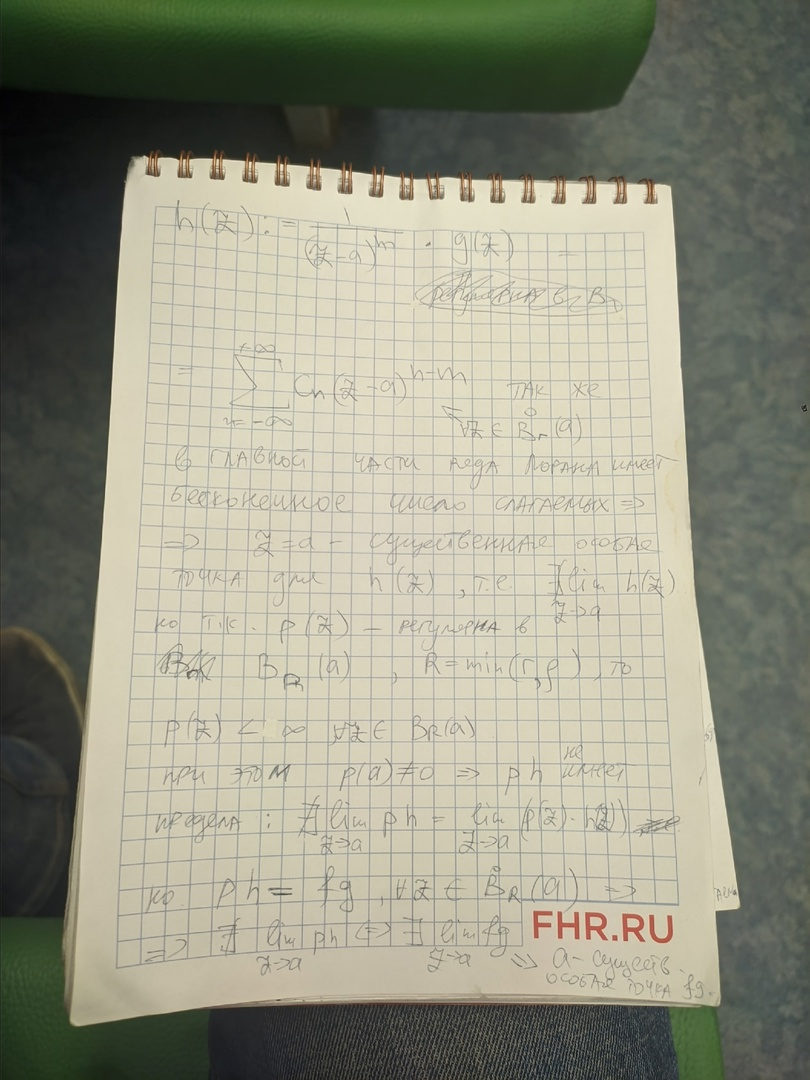 h(z) := 1/(z-a)^m · g(z) =
регулярна в B
= ∑_{n=-∞}^{+∞} Cn(z-a)^{n-m} так же
∀z ∈ B̊r(a)
в главной части ряда Лорана имеет
бесконечное число слагаемых =>
=> z=a - существенная особая
точка для h(z), т.е. ∄ lim_{z→a} h(z)
но т.к. p(z) - регулярна в
B_R(a), R=min(r,ρ), то
p(z) < ∞ ∀z ∈ B_R(a)
при этом p(a)≠0 => ph не имеет
предела: ∄ lim_{z→a} ph = lim_{z→a} (p(z)·h(z))
но ph = fg, ∀z ∈ B̊_R(a) =>
=> ∄ lim_{z→a} ph <=> ∄ lim_{z→a} fg
=> a - существ.
особая точка fg.
FHR.RU